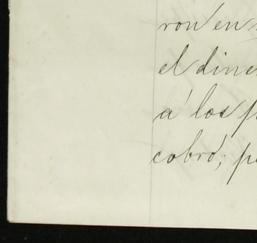 ron en
el dine
á los p
cobró; p